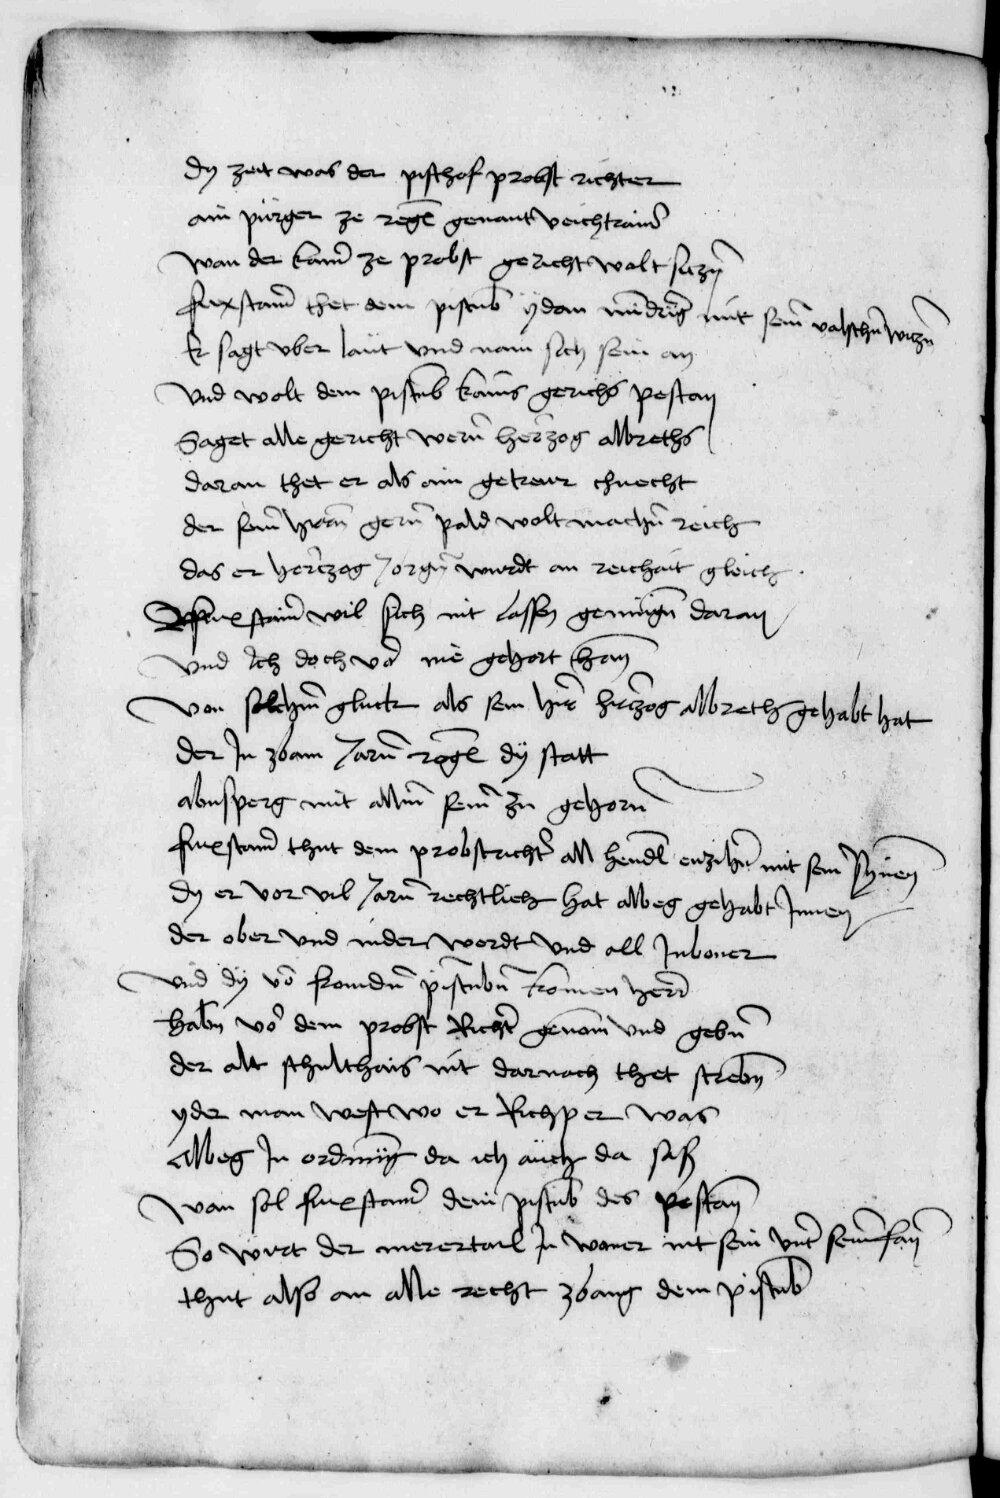 dy zeit was der pischof probst richter
ain pürger ze regl genant veichtaim̄
wan der kam̄ ze probst gericht wolt siczn̄
fuxstain̄ thet dem pistub̄ ydan mit sein̄ valschn̄ wiczn̄
Er sagt vber laut vnd nam sich sein an
vnd wolt dem pistub̄ kains gerichs pestan
Saget alle gericht wern̄ herczog albrechs
daran thet er als ain getrewr chnecht
der sein̄ hern̄ gern̄ pald wolt machn̄ reich
das er herczog Jorgn̄ wurdt an reichait gleich
fuxstain̄ wil sich nit lassen genuegn̄ daran
vnd Ich doch vor nie gehort han
von solchm̄ gluck als sein her herczog albrecht gehabt hat
der In zban Jarn̄ regl dy statt
abnsperg mit allm̄ sein̄ zu gehorn̄
fuxstain̄ thut dem probstricht̄ all hendl enzihn̄ mit sein synnen
dy er vor vil Jarn̄ rechtlich hat albeg gehabt Innen
der ober vnd nider werdt vnd all Inboner
vnd dy vo fremdn̄ pistubn̄ komen her
habn̄ vo dem probst Richt̄ genom̄ vnd gebn̄
der alt schulthais nit darnach thet strebn̄
yder man west wo er Richper was
albeg In ordnūg da ich auch da sas
wan sol fuxstain̄ dem pistub̄ des pestan
So wirt der merertail In waner nit sein vnt̄ sein̄ fan̄
thut also an alle recht zbang dem pistub̄